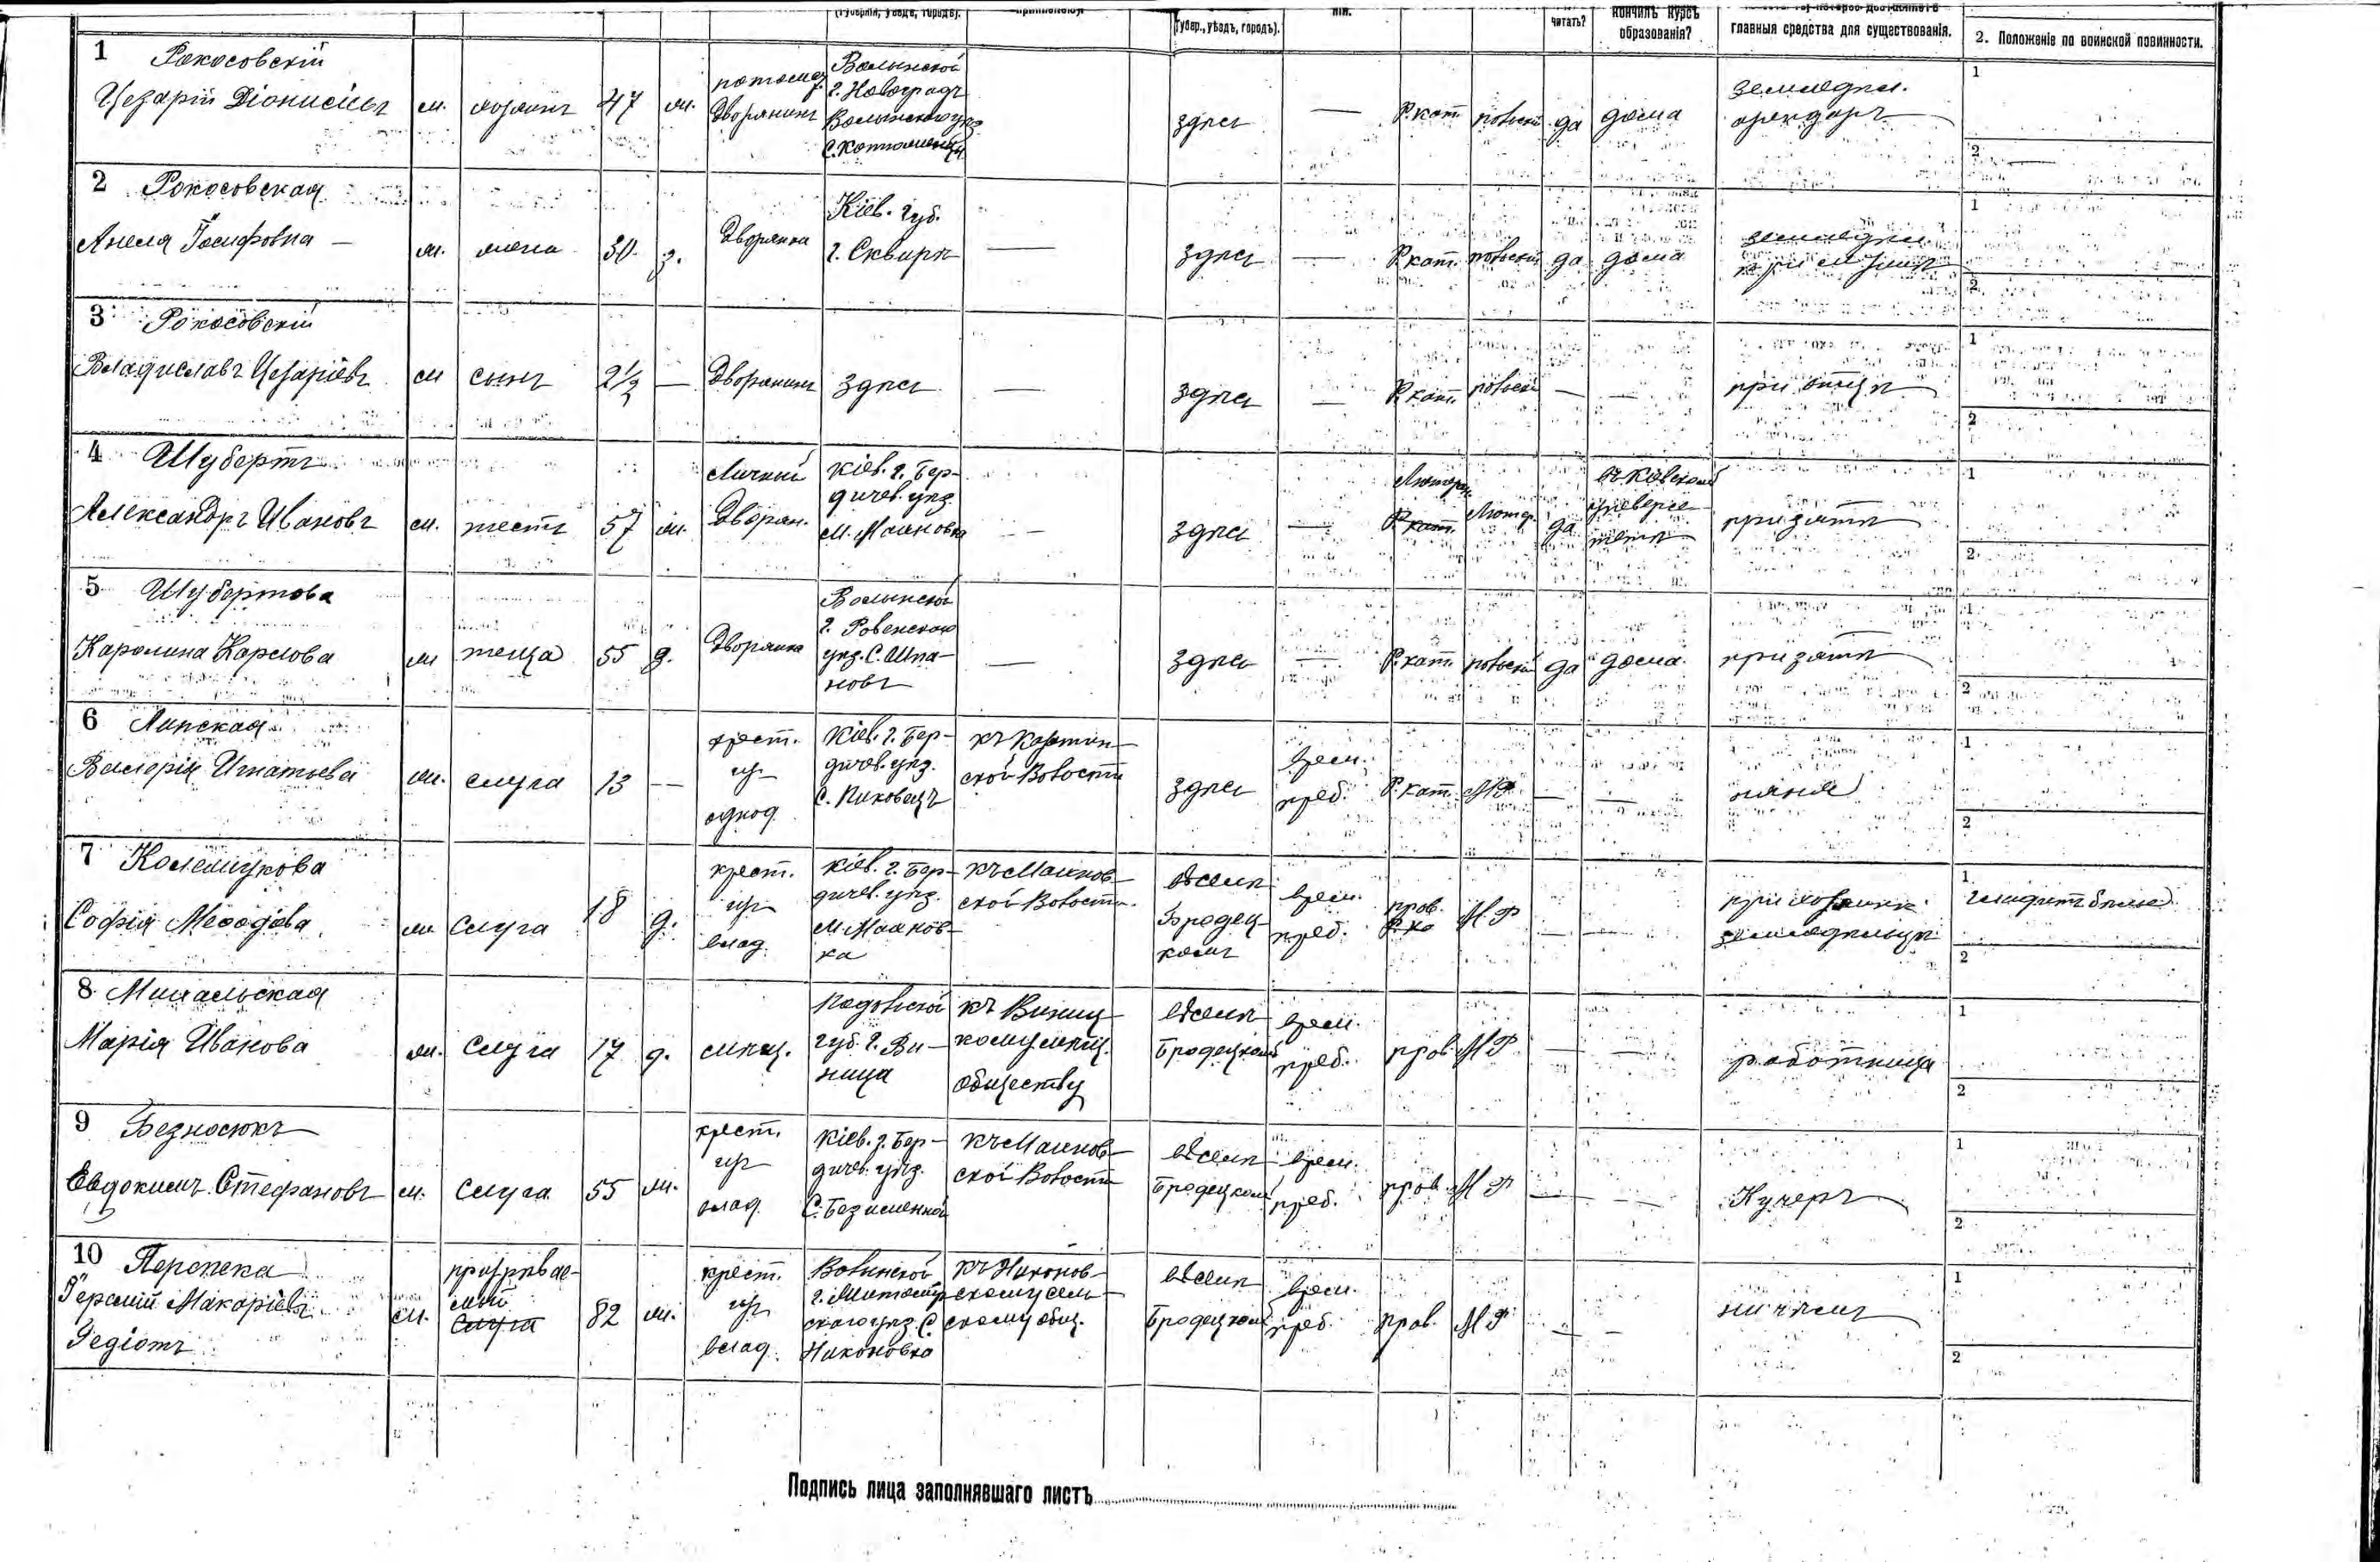 (Губернія, уѣздъ, городъ).
(Губер., уѣздъ, городъ).
нія.
читать?
кончилъ курсъ образованія?
главныя средства для существованія.
2. Положеніе по воинской повинности.
1 Рокосовскій
Цезарій Діонисіевъ м. хозяинъ 47 ж. потомст. Дворянинъ Волынской г. Новоградъ Волынского уѣз. здѣсь — Р. кат. польскій да дома земледѣл. арендаръ 1 2 —
2 Рокосовская
Анеля Іосифовна — ж. жена 30. з. Дворянка Кіев. губ. г. Сквирѣ — здѣсь — Р. кат. польскій да дома земледѣл. при мужѣ 1 2
3 Рокосовскій
Владиславъ Цезаріевъ м сынъ 2½ — Дворянинъ здѣсь — здѣсь — Р. кат. польскій — — при отцѣ 1 2
4 Шубертъ
Александръ Ивановъ м. тесть 57 ж. Личный Дворян. Кіев. г. Бердичев. уѣз. М. Махновка — здѣсь — Лютеран. Р. кат. Лютер. да въ Кіевском универсететѣ при зятѣ 1 2
5 Шубертова
Каролина Карлова ж теща 55 з. Дворянка Волынской г. Ровенского уѣз. С. Шпановъ — здѣсь — Р. кат. польскій да дома. при зятѣ 1 2
6 Липская
Валерія Игнатьева ж. слуга 13 — крест. из однод. Кіев. г. Бердичев. уѣз. С. Пиковецъ Волости здѣсь врем. преб. Р. кат. М Р. — — няня 1 2
7 Колемукова
Софія Меѳодова ж слуга 18 д. крест. из влад. Кіев. г. Бердичев. уѣз. М. Махновка къ Махновской Волости. в Селѣ Бродецкомъ врем. преб. прав. М. Р — — при хозяинѣ земледѣльцѣ 1 2
8 Михальская
Марія Иванова ж. слуга 17 д. мѣщ. Подольской губ. г. Виница къ Виницкому мѣщ. обществу в Селѣ Бродецком врем. преб. прав. М Р. — — работница 1 2
9 Безносюкъ
Евдокимъ Стефановъ м. слуга 55 ж. крест. из влад. Кіев. г. Бердичев. уѣз. С. Безименной къ Махновской Волости в Селѣ Бродецком врем. преб. прав. М Р — — Кучеръ 1 2
10
Макаріевъ м. призрѣваемый слуга 82 ж. крест. из влад. Волынской г. Житомирского уѣз. С. Никоновка къ Никоновскому сельскому общ. в Селѣ Бродецком врем. преб. прав. М Р — — ни чѣмъ 1 2
Подпись лица заполнявшаго листъ